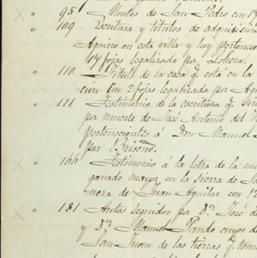 95 Montes de San Pedro con 19
109 Escritura y titulos de adquisici
Aguirre en esta villa y hoy pertenec
17 fojas legalizada por
110 Titulo de la casa q. está en la
con 2 fojas legalizada por Ag
111 Testimonio de la escritura q.
por muerte de José Antonio del
pertenecientes á Don Manuel
por Briseño.
166 Testimonio á la letra de la
ganado mayor en la sierra de
nera de Juan Aguilar con 12
181 Autos seguidos pr. Dn. José de
y Dn. Manuel Pando cuyos de
San Juan de las tierras q. tom